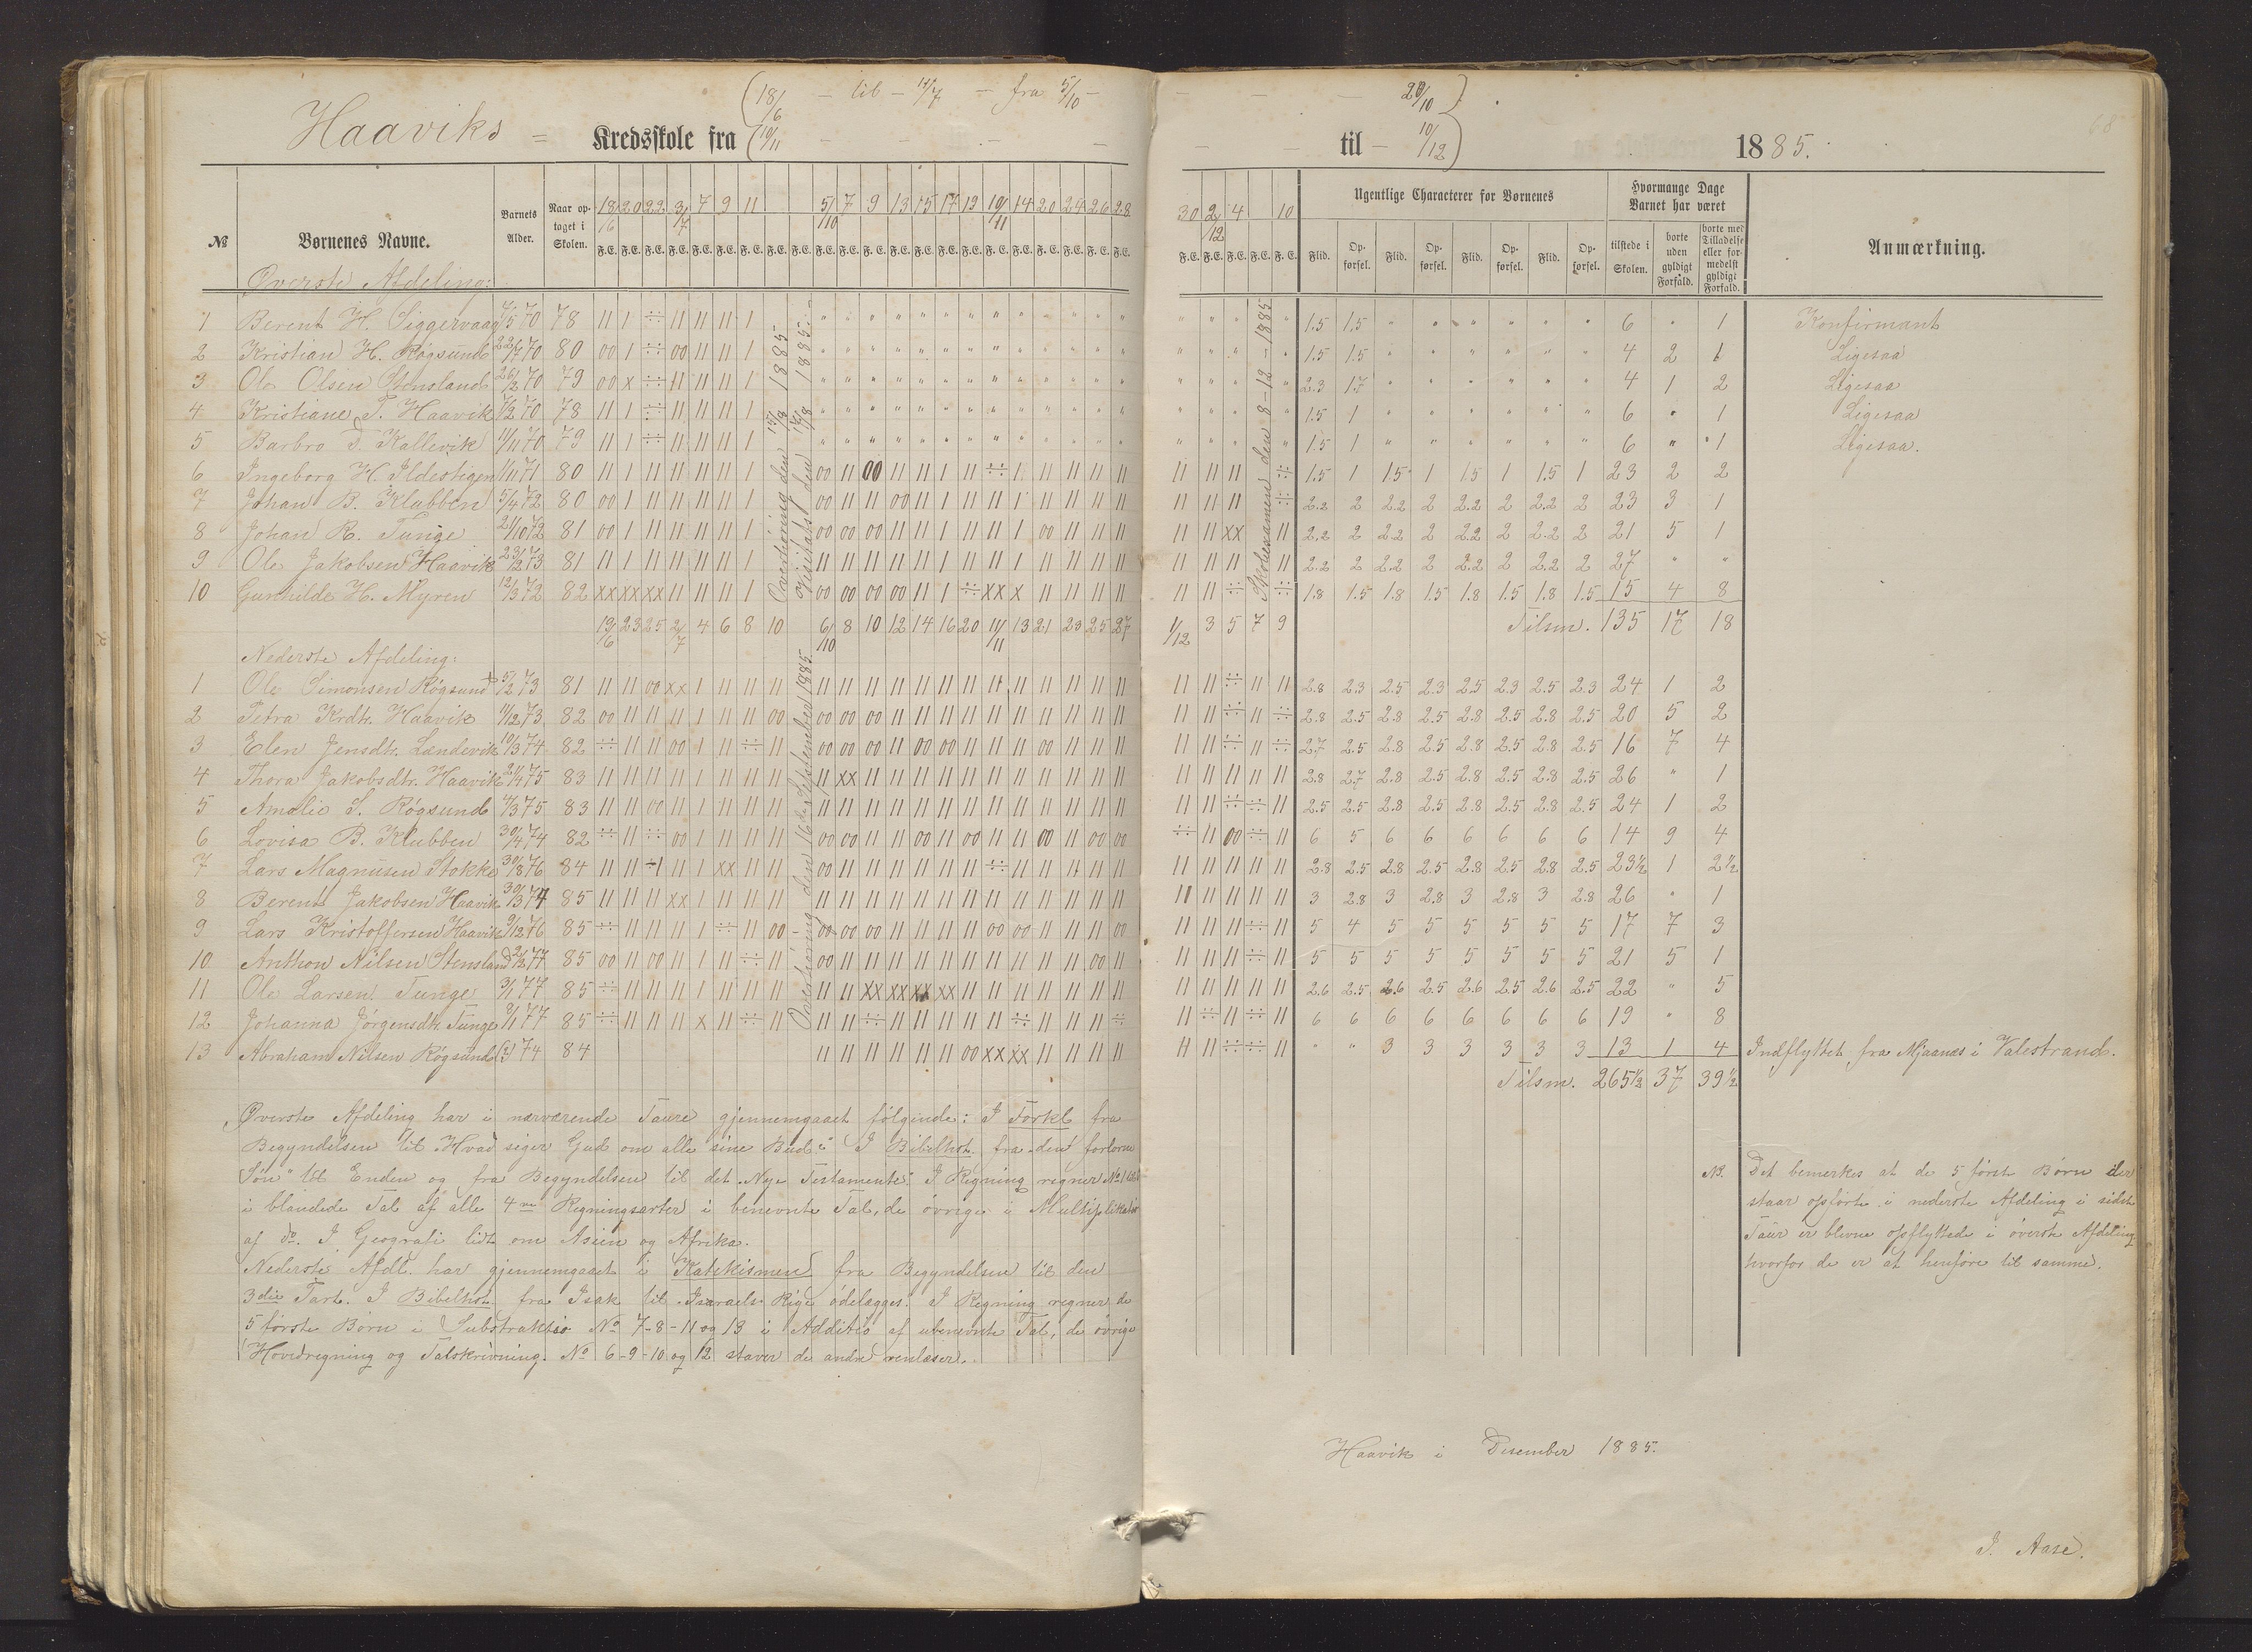 (18/6 – til – 11/7 – fra 5/10 – – – – 20/10)
Haaviks = Kredsskole fra (10/11 – – – – – til – 10/12) 1885.
68
№ Børnenes Navne. Barnets Alder. Naar optaget i Skolen. 18/6 20 22 3/7 7 9 11 5/10 7 9 13 15 17 19 10/11 14 20 24 26 28 30 2/12 4 10 Ugentlige Characterer for Børnenes Hvormange Dage Barnet har været Anmærkning.
F. E. Flid. Opførsel. Flid. Opførsel. Flid. Opførsel. Flid. Opførsel. tilstede i Skolen. borte uden gyldigt Forfald. borte med Tilladelse eller formedelst gyldigt Forfald.
Øverste Afdeling:
1 Berent H. Siggervaag 7/5 70 78 11 1 ÷ 11 11 11 1 1.5 1.5 6 " 1 Konfirmant
2 Kristian H. Røgsund 22/7 70 80 00 1 ÷ 00 11 11 1 1.5 1.5 4 2 1 Ligesaa
3 Ole Olsen Stensland 26/2 70 79 00 x ÷ 11 11 11 1 2.3 1.7 4 1 2 Ligesaa
4 Kristiane T. Haavik 7/2 70 78 11 1 ÷ 11 11 11 1 1.5 1 6 " 1 Ligesaa
5 Barbro D. Kallevik 11/11 70 79 11 1 ÷ 11 11 11 1 1.5 1 6 " 1 Ligesaa.
6 Ingeborg H. Ildestigen 1/11 71 80 11 1 11 11 11 11 1 00 11 00 11 11 1 11 ÷ 1 11 11 11 11 11 11 11 ÷ 1.5 1 1.5 1 1.5 1 1.5 1 23 2 2
7 Johan B. Klubben 5/4 72 80 00 1 11 11 11 11 1 00 11 11 00 11 1 11 11 1 11 11 11 11 11 11 11 ÷ 2.2 2 2.2 2 2.2 2 2.2 2 23 3 1
8 Johan R. Tunge 21/10 72 81 00 1 11 11 11 11 1 00 00 00 11 11 1 11 11 1 00 11 11 11 11 11 xx 11 2.2 2 2.2 2 2.2 2 2.2 2 21 5 1
9 Ole Jakobsen Haavik 23/2 73 81 11 1 11 11 11 11 1 11 11 11 11 11 1 11 11 1 11 11 11 11 11 11 11 11 2.2 2 2.2 2 2.2 2 2.2 2 27 " "
10 Gunhilde H. Myren 12/3 72 82 xx xx xx 11 11 11 1 00 00 00 00 11 1 ÷ xx x 11 11 11 11 11 11 ÷ ÷ 1.8 1.5 1.8 1.5 1.8 1.5 1.8 1.5 15 4 8
Overhøring den 13/8 1885
Visitats den 14/8 1885.
Skoleexamen den 8-12-1885
19/6 23 25 2/7 4 6 8 10 6/10 8 10 12 14 16 20 11/11 13 21 23 25 27 1/12 3 5 7 9 Tilsm. 135 17 18
Nederste Afdeling:
1 Ole Simonsen Røgsund 5/2 73 81 11 11 00 xx 1 11 11 11 11 11 11 11 11 11 11 11 11 11 11 11 11 11 11 ÷ 11 11 2.8 2.3 2.5 2.3 2.5 2.3 2.5 2.3 24 1 2
2 Petra Krdtr. Haavik 11/12 73 82 00 11 11 11 1 11 11 00 00 00 00 11 11 11 11 11 11 11 11 11 11 11 11 ÷ 11 ÷ 2.8 2.5 2.8 2.5 2.8 2.5 2.8 2.5 20 5 2
3 Elen Jensdtr. Landevik 10/3 74 82 ÷ 11 11 00 1 11 ÷ 11 00 00 00 11 00 00 11 11 11 00 11 11 11 11 11 ÷ 11 ÷ 2.7 2.5 2.8 2.5 2.8 2.5 2.8 2.5 16 7 4
4 Thora Jakobsdtr. Haavik 21/4 75 83 11 11 11 11 1 11 11 11 11 xx 11 11 11 11 11 11 11 11 11 11 11 11 11 11 11 11 2.8 2.7 2.8 2.5 2.8 2.5 2.8 2.5 26 " 1
5 Amalie S. Røgsund 4/3 75 83 11 11 00 11 1 11 11 11 11 11 11 11 11 11 11 11 11 11 11 11 11 11 11 ÷ ÷ 11 2.5 2.5 2.8 2.5 2.8 2.5 2.8 2.5 24 1 2
6 Lovisa B. Klubben 30/4 74 82 ÷ 11 ÷ 00 1 11 11 11 00 00 11 11 00 11 00 11 11 00 11 00 00 ÷ 11 00 ÷ 11 6 5 6 6 6 6 6 6 14 9 4
7 Lars Magnusen Stokke 30/8 76 84 11 11 -1 11 1 xx 11 11 00 11 11 11 11 11 11 ÷ 11 11 11 11 11 11 11 11 11 11 2.8 2.5 2.8 2.5 2.8 2.5 2.8 2.5 23½ 1 2½
8 Berent Jakobsen Haavik 30/3 74 85 11 11 11 xx 1 11 11 11 11 11 11 11 11 11 11 11 11 11 11 11 11 11 11 11 11 11 3 2.8 3 2.8 3 2.8 3 2.8 26 " 1
9 Lars Kristoffersen Haavik 9/12 76 85 ÷ 11 11 11 1 ÷ 11 00 00 00 00 11 11 11 11 00 00 11 11 11 00 11 11 11 ÷ 11 5 4 5 5 5 5 5 5 17 7 3
10 Anthon Nilsen Stensland 2/2 77 85 00 11 00 11 1 11 ÷ 11 00 11 11 11 11 11 11 11 11 11 11 00 11 11 11 11 ÷ 11 5 5 5 5 5 5 5 5 21 5 1
11 Ole Larsen Tunge 3/1 77 85 ÷ 11 11 11 1 11 11 11 11 11 xx xx xx xx 11 11 11 11 11 11 11 11 11 11 11 11 2.6 2.5 2.6 2.5 2.6 2.5 2.6 2.5 22 " 5
12 Johanna Jørgensdtr. Tunge 8/1 77 85 ÷ 11 11 11 x 11 ÷ 11 11 11 ÷ 11 11 11 11 11 ÷ 11 11 11 ÷ 11 ÷ 11 ÷ 11 6 6 6 6 6 6 6 6 19 " 8
13 Abraham Nilsen Røgsund 74 84 11 11 11 11 11 11 00 xx xx 11 11 11 11 11 11 ÷ ÷ 11 " " 3 3 3 3 3 3 13 1 4 Indflyttet fra Mjaanæs i Valestrand.
Overhøring den 16de September 1885
Tilsm. 265½ 37 39½
Øverste Afdeling har i nærværende Taure gjennemgaaet følgende: I Forkl. fra
Begyndelsen til "Hvad siger Gud om alle sine Bud". I Bibelhist. fra "den forlorne
Søn" til Enden og fra Begyndelsen til det Nye Testamente. I Regning regner №1
i blandede Tal af alle 4re Regningsarter i benevnte Tal, de øvrige i Multiplikation
af do. I Geografi lidt om Asien og Afrika.
Nederste Afdl. har gjennemgaaet i Katekismen fra Begyndelsen til den
3die Part. I Bibelhist. fra Isak til Israels Rige ødelægges. I Regning regner de
5 første Børn i Substraktio № 7-8-11 og 13 i Additio af ubenevnte Tal, de øvrige
Hovedregning og Talskrivning. № 6-9-10 og 12 staver de andre renlæser.
NB. Det bemerkes at de 5 først Børn der
staar opførte i nederste Afdeling i sidste
Taur er blevne opflyttede i øverste Afdeling
hvorfor de er at henføre til samme.
Haavik i Desember 1885.
J. Aase.